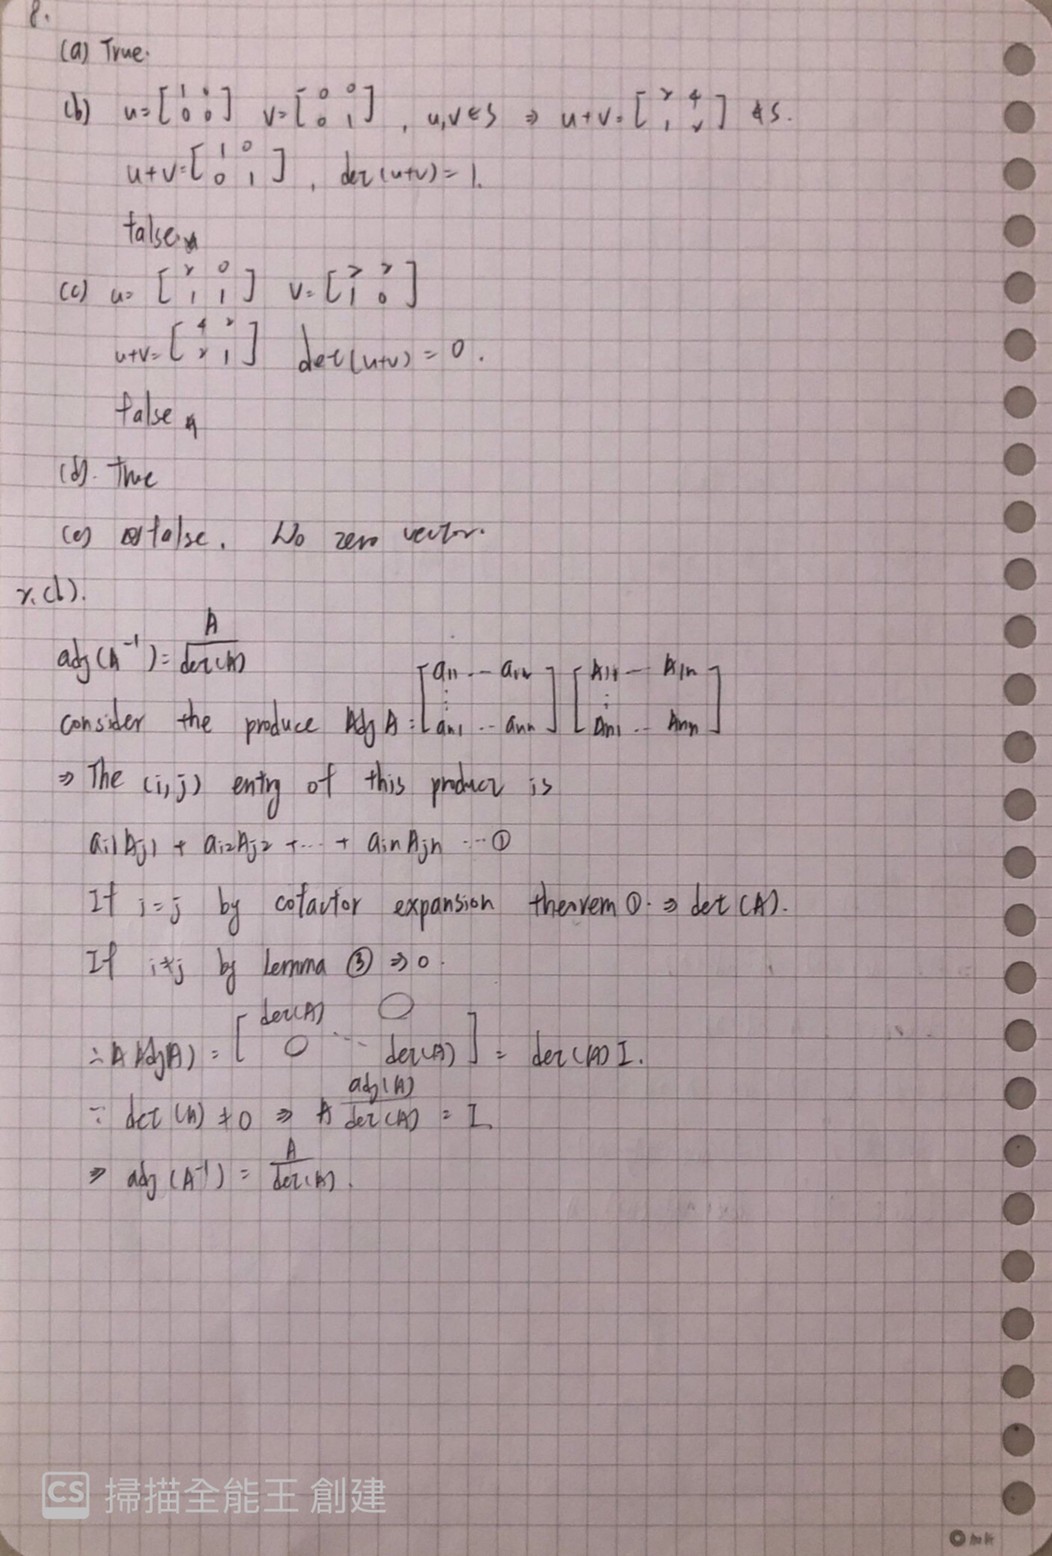 8.
(a) True.
(b) u=[1 0 0 0] v=[0 0 0 1], u,v∈S ⇒ u+v=[2 4 1 2] ∉ S.
u+v=[1 0 0 1], det(u+v)=1.
false
(c) u=[2 0 1 1] v=[2 2 1 0]
u+v=[4 2 2 1] det(u+v)=0.
false
(d). true
(e) false. No zero vector.
2.(b).
adj(A⁻¹)=A/det(A)
consider the produce Adj A=[a11 ... a1n ⋮ an1 ... ann][A11 ... A1n ⋮ An1 ... Ann]
⇒ The (i,j) entry of this product is
ai1Aj1 + ai2Aj2 + ... + ainAjn ...①
If i=j by cofactor expansion theorem ①. ⇒ det(A).
If i≠j by Lemma ③ ⇒ 0.
∴ A Adj(A) = [det(A) 0 0 ⋱ det(A)] = det(A) I.
∵ det(A)≠0 ⇒ A adj(A)/det(A) = I
⇒ adj(A⁻¹) = A/det(A).
CS 掃描全能王 創建